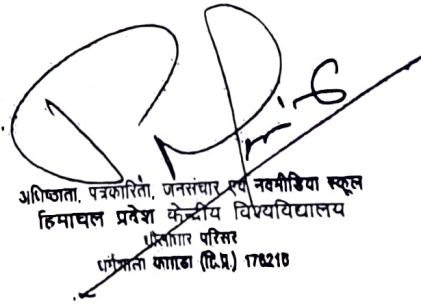 अधिष्ठाता, पत्रकारिता, जनसंचार एवं नवमीडिया स्कूल
हिमाचल प्रदेश केन्द्रीय विश्वविद्यालय
परिसर
(हि.प्र.) 176215